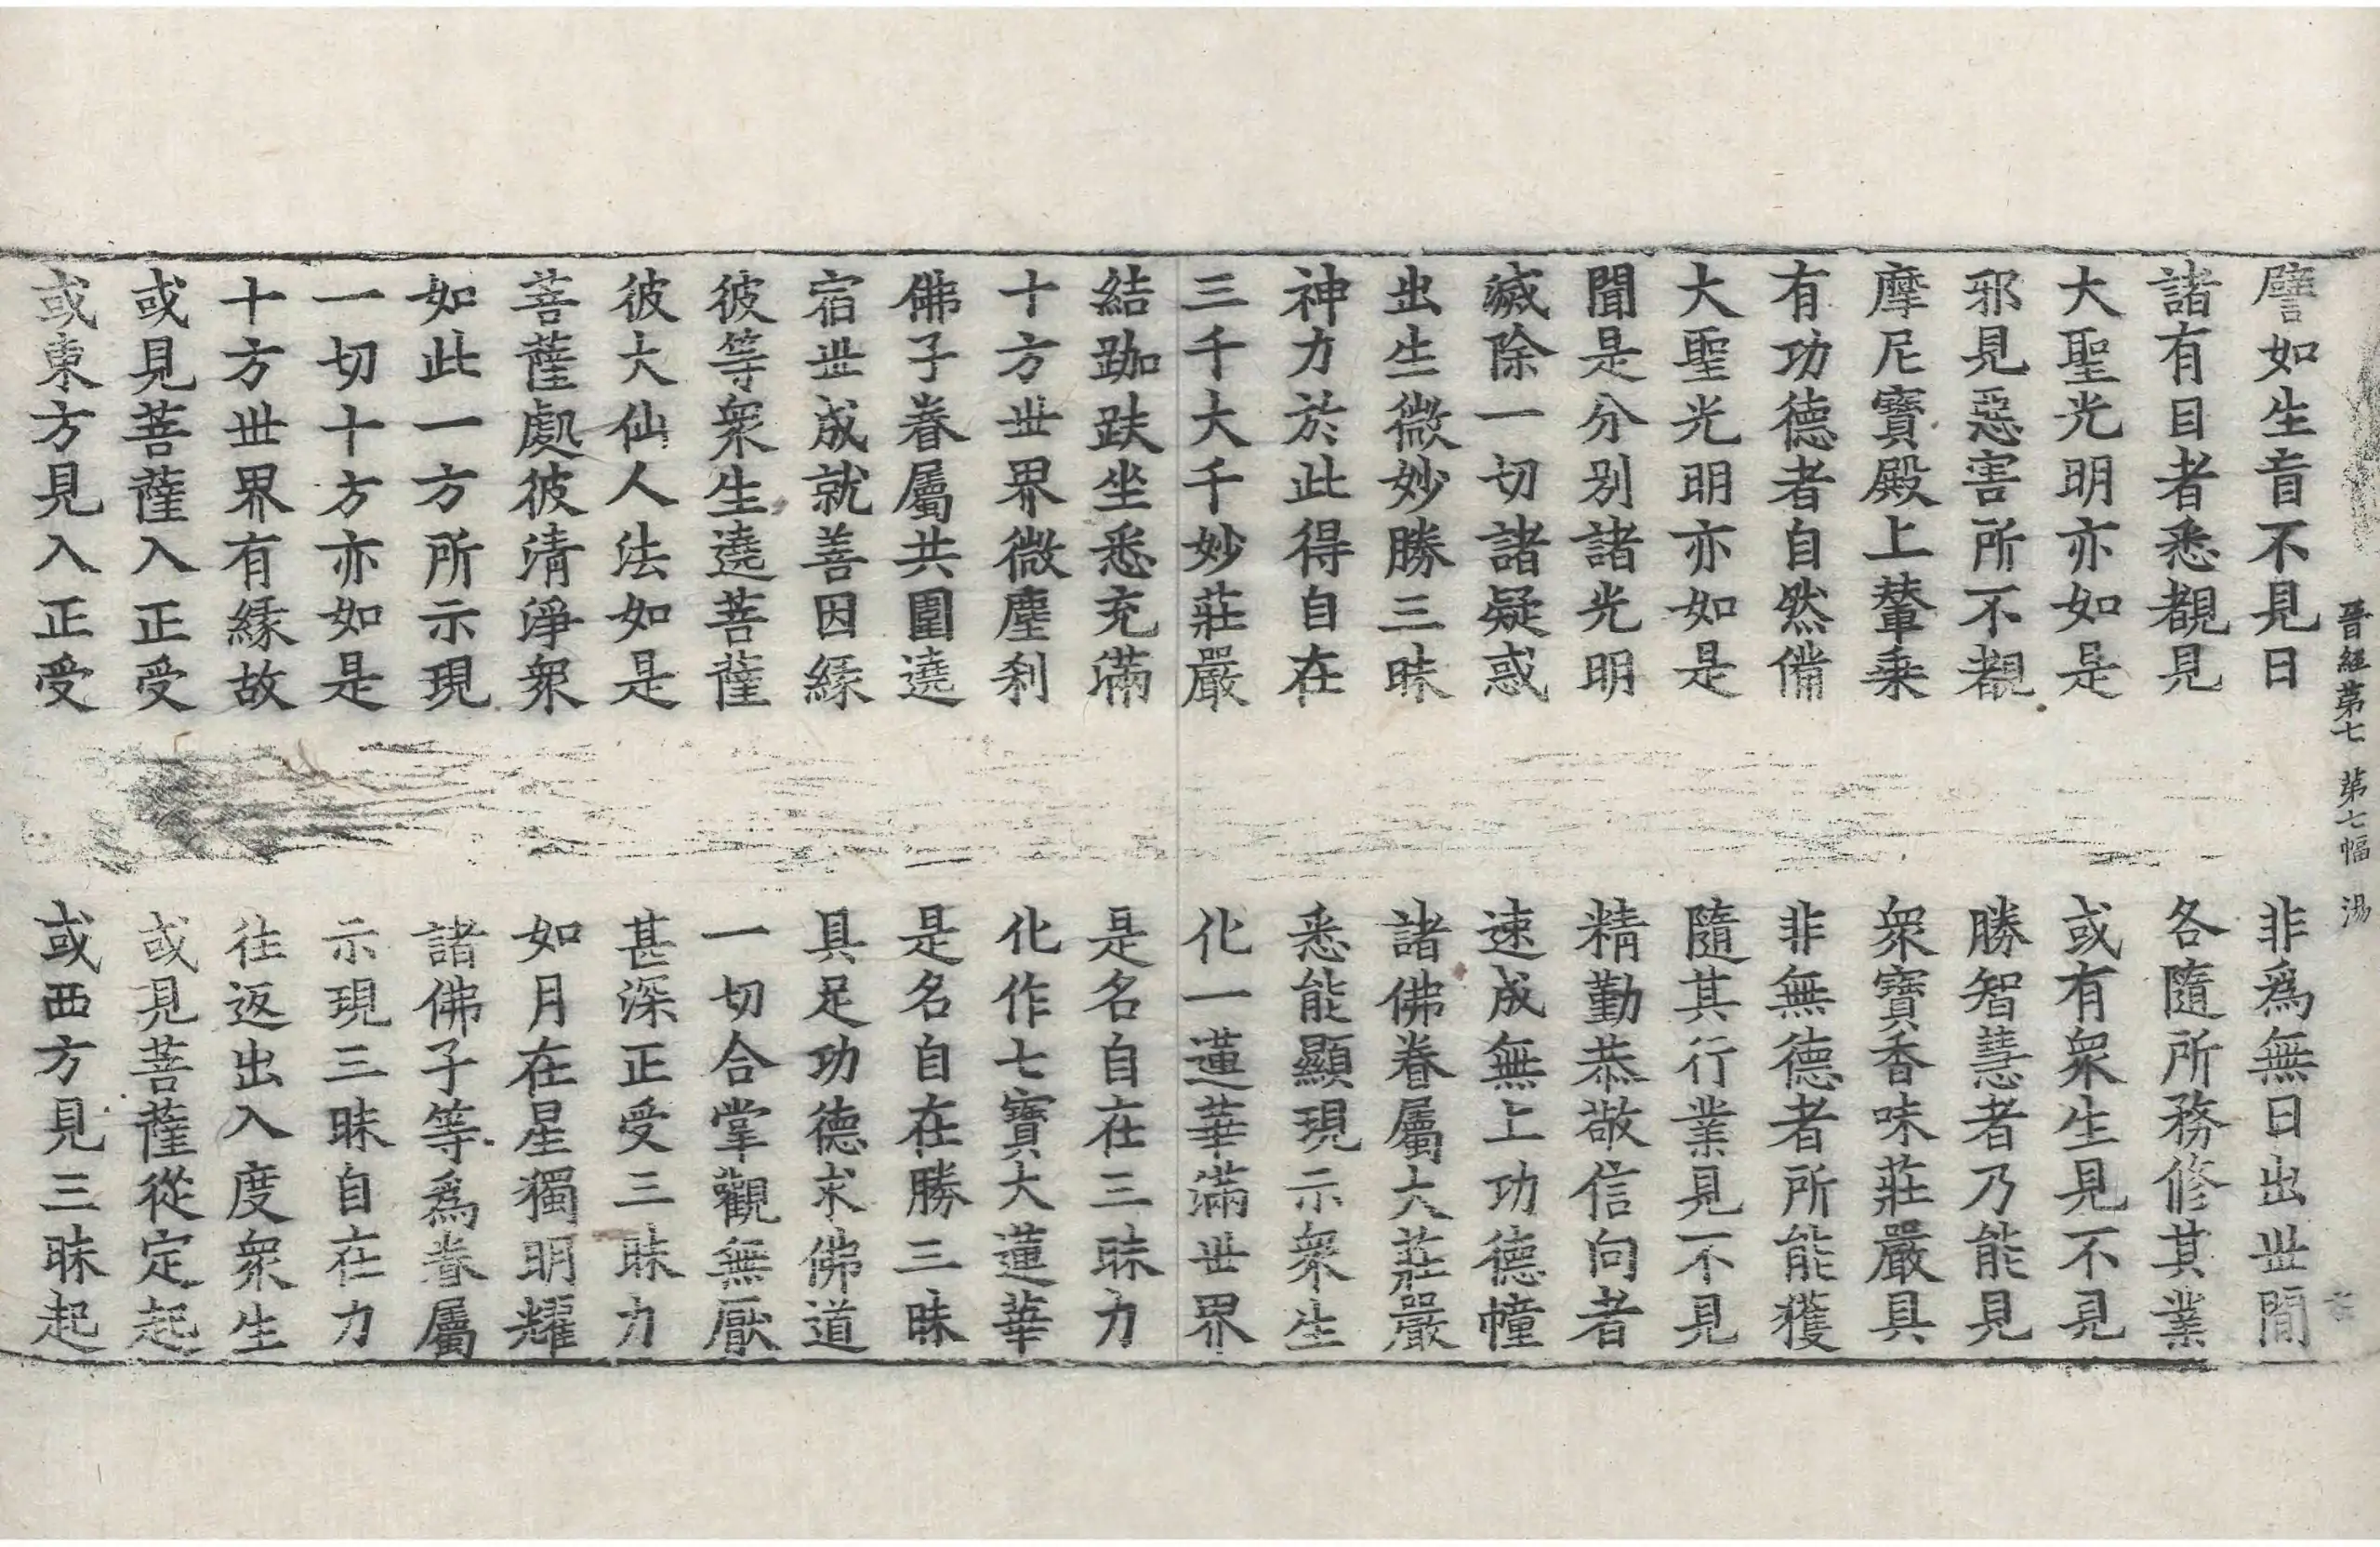 晉經第七 第七幅 湯
譬如生盲不見日 非爲無日出世間
諸有目者悉覩見 各隨所務修其業
大聖光明亦如是 或有衆生見不見
邪見惡害所不覩 勝智慧者乃能見
摩尼寶殿上輦乘 衆寶香味莊嚴具
有功德者自然備 非無德者所能獲
大聖光明亦如是 隨其行業見不見
聞是分别諸光明 精勤恭敬信向者
滅除一切諸疑惑 速成無上功德幢
出生微妙勝三昧 諸佛眷屬大莊嚴
神力於此得自在 悉能顯現示衆生
三千大千妙莊嚴 化一蓮華滿世界
結跏趺坐悉充滿 是名自在三昧力
十方世界微塵刹 化作七寶大蓮華
佛子眷屬共圍遶 是名自在勝三昧
宿世成就善因緣 具足功德求佛道
彼等衆生遶菩薩 一切合掌觀無厭
彼大仙人法如是 甚深正受三昧力
菩薩處彼清淨衆 如月在星獨明耀
如此一方所示現 諸佛子等爲眷屬
一切十方亦如是 示現三昧自在力
十方世界有緣故 往返出入度衆生
或見菩薩入正受 或見菩薩從定起
或東方見入正受 或西方見三昧起